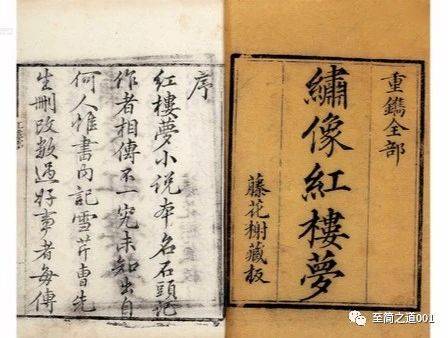 重鐫全部
繡像紅樓夢
藤花榭藏板
序
紅樓夢小說本名石頭記
作者相傳不一究未知出自
何人惟書內記雪芹曹先
生刪改數過好事者每傳
至简之道001